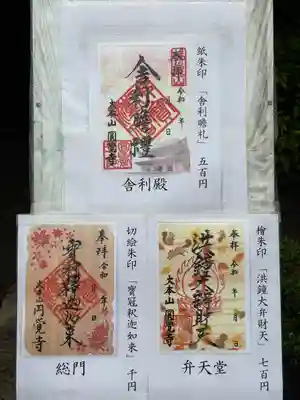 紙朱印
「舎利瞻礼」
五百円
令和 年 月 日
舎利瞻禮
大本山 圓覚寺
舎利殿
切絵朱印
「宝冠釈迦如来」
千円
奉拝 令和 年 月 日
寳冠釋迦如来
大本山 円覚寺
総門
檜朱印
「洪鐘大弁財天」
七百円
奉拝 令和 年 月 日
洪鐘大辨財天
大本山 圓覚寺
弁天堂